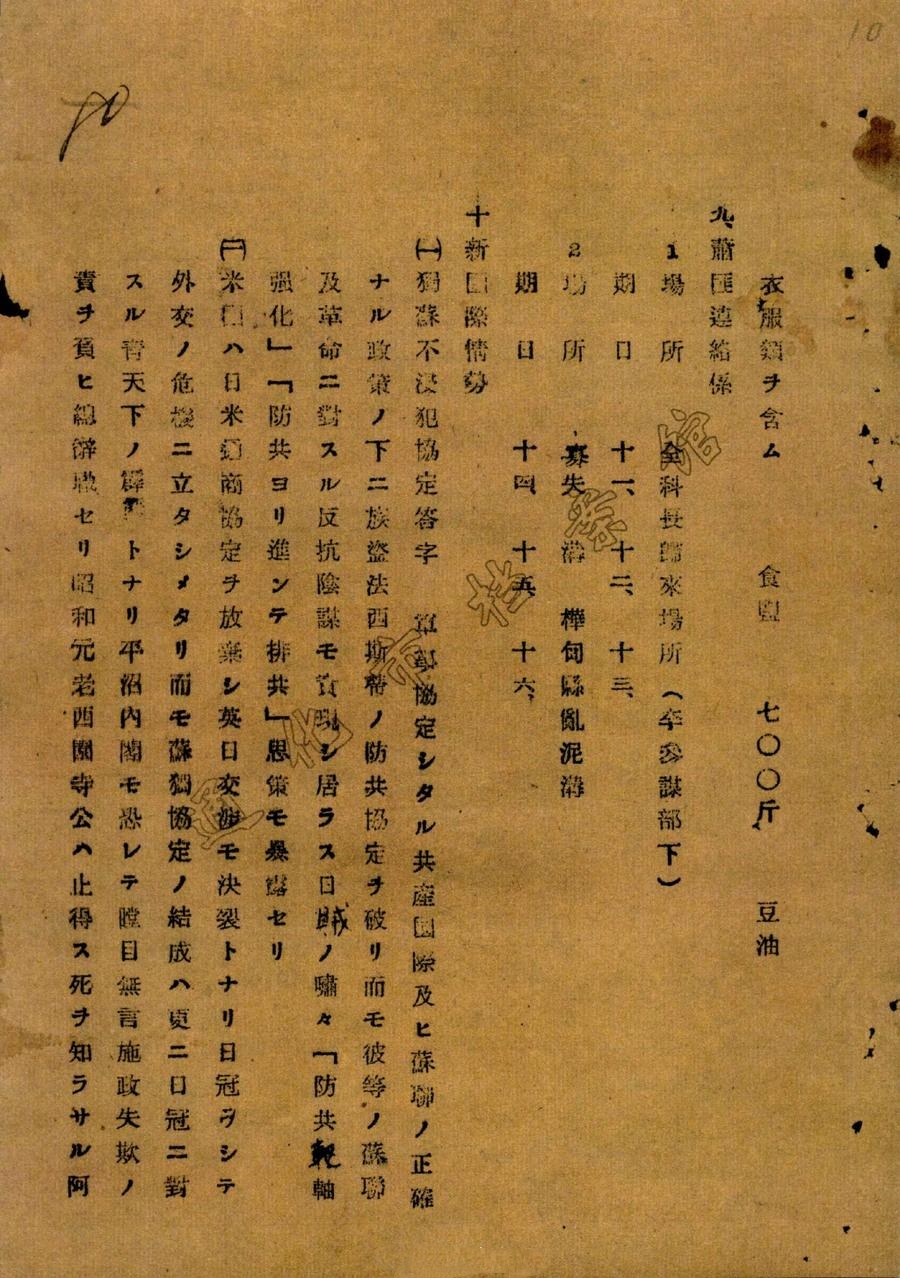 10
衣服類ヲ含ム 食塩 七〇〇斤 豆油
九、蕭匪連絡係
1 場所 全科長歸來場所(卒參謀部下)
期日 十一、十二、十三、
2 場所 溝 樺甸縣亂泥溝
期日 十四、十五、十六、
十 新国際情勢
㈠ 獨蘇不浸犯協定答字 協定シタル共産国際及ヒ蘇聯ノ正確
ナル政策ノ下ニ族盗法西斯蒂ノ防共協定ヲ破リ而モ彼等ノ蘇聯
及革命ニ對スル反抗陰謀モ實現シ居ラス日賊ノ嘯々「防共軸
强化」「防共ヨリ進ンテ排共」思策モ暴露セリ
㈡ 米国ハ日米通商協定ヲ放棄シ英日交渉モ決裂トナリ日冠ヲシテ
外交ノ危機ニ立タシメタリ而モ蘇獨協定ノ結成ハ更ニ日冠ニ對
スル青天下ノ霹靂トナリ平沼内閣モ恐レテ瞠目無言施政失欺ノ
責ヲ負ヒ總辭職セリ昭和元老西園寺公ハ止得ス死ヲ知ラサル阿
通化市档案館